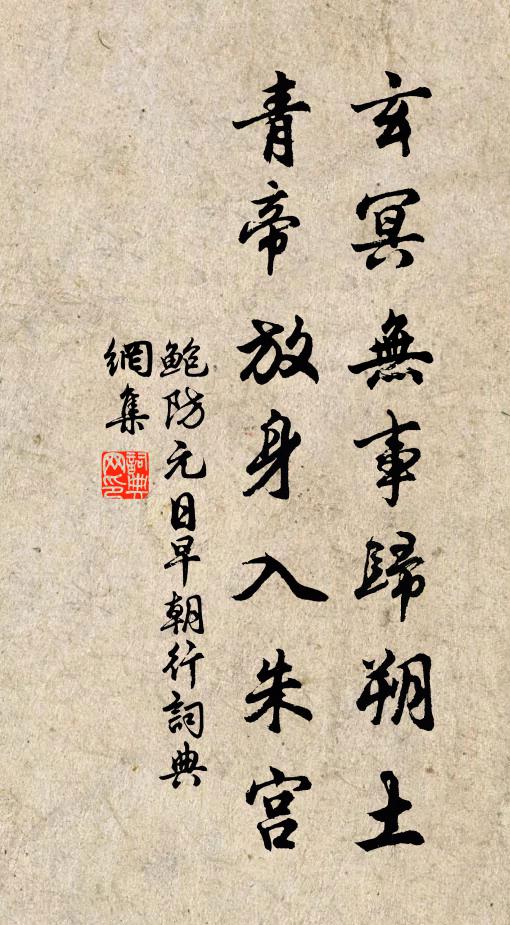 玄冥無事歸朔土
青帝放身入朱宫
鮑防元日早朝行詞典
網集
詞典網印